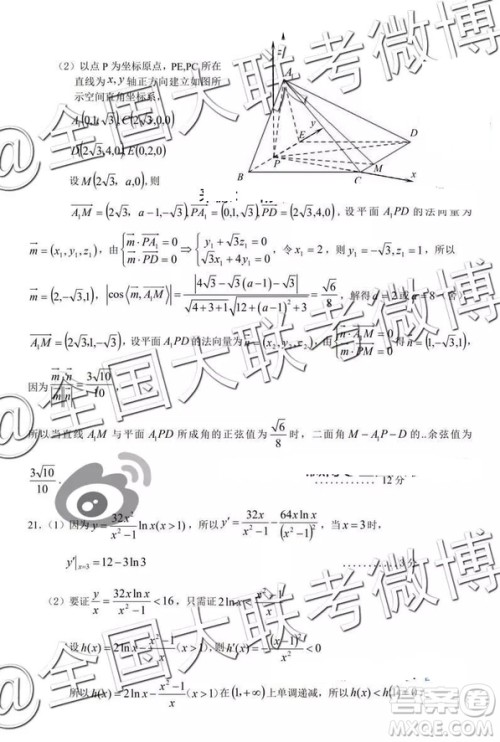 （2）以点 P 为坐标原点，PE,PC 所在
直线为 x, y 轴正方向建立如图所
示空间直角坐标系，
A₁(0,1,√3), C(2√3,0,0)
D(2√3,4,0), E(0,2,0)
设 M(2√3, a,0), 则
z
A₁
y
E
D
P
M
B
C
x
A₁M = (2√3, a−1,−√3), PA₁ = (0,1,√3), PD = (2√3,4,0), 设平面 A₁PD 的法向量为
m = (x₁, y₁, z₁)，由 {m·PA₁ = 0, m·PD = 0 ⇒ {y₁ + √3z₁ = 0, √3x₁ + 4y₁ = 0，令 x₁ = 2，则 y₁ = −√3，所以
m = (2,−√3,1)，|cos⟨m, A₁M⟩| = |4√3 − √3(a−1) − √3| / (√(4+3+1)√(12+(a−1)²+3)) = √6/8，解得 a = 2 或 a = 8（舍）
A₁M = (2√3,1,−√3)，设平面 A₁PD 的法向量为 n = (x₂, y₂, z₂)，由 得 n = (1,−√3,1)
因为 = 3√10/10，
所以当直线 A₁M 与平面 A₁PD 所成角的正弦值为 √6/8 时，二面角 M−A₁P−D 的..余弦值为
3√10/10． ............ 12 分
21.（1）因为 y = 32x²/(x²−1) ln x (x > 1)，所以 y' = 32x/(x²−1) − 64x ln x/(x²−1)²，当 x = 3 时，
y'|ₓ₌₃ = 12 − 3 ln 3
（2）要证 y/x = 32x ln x/(x²−1) < 16，只需证 2 ln x <
设 h(x) = 2 ln x − (x²−1)/x (x > 1)，则 h'(x) = −(x−1)²/x² < 0
所以 h(x) = 2 ln x − (x²−1)/x (x > 1) 在 (1, +∞) 上单调递减，所以 h(x) < h(1) = 0，
@全国大联考微博
@全国大联考微博
@全国大联考微博
答案圈
MXQE.COM